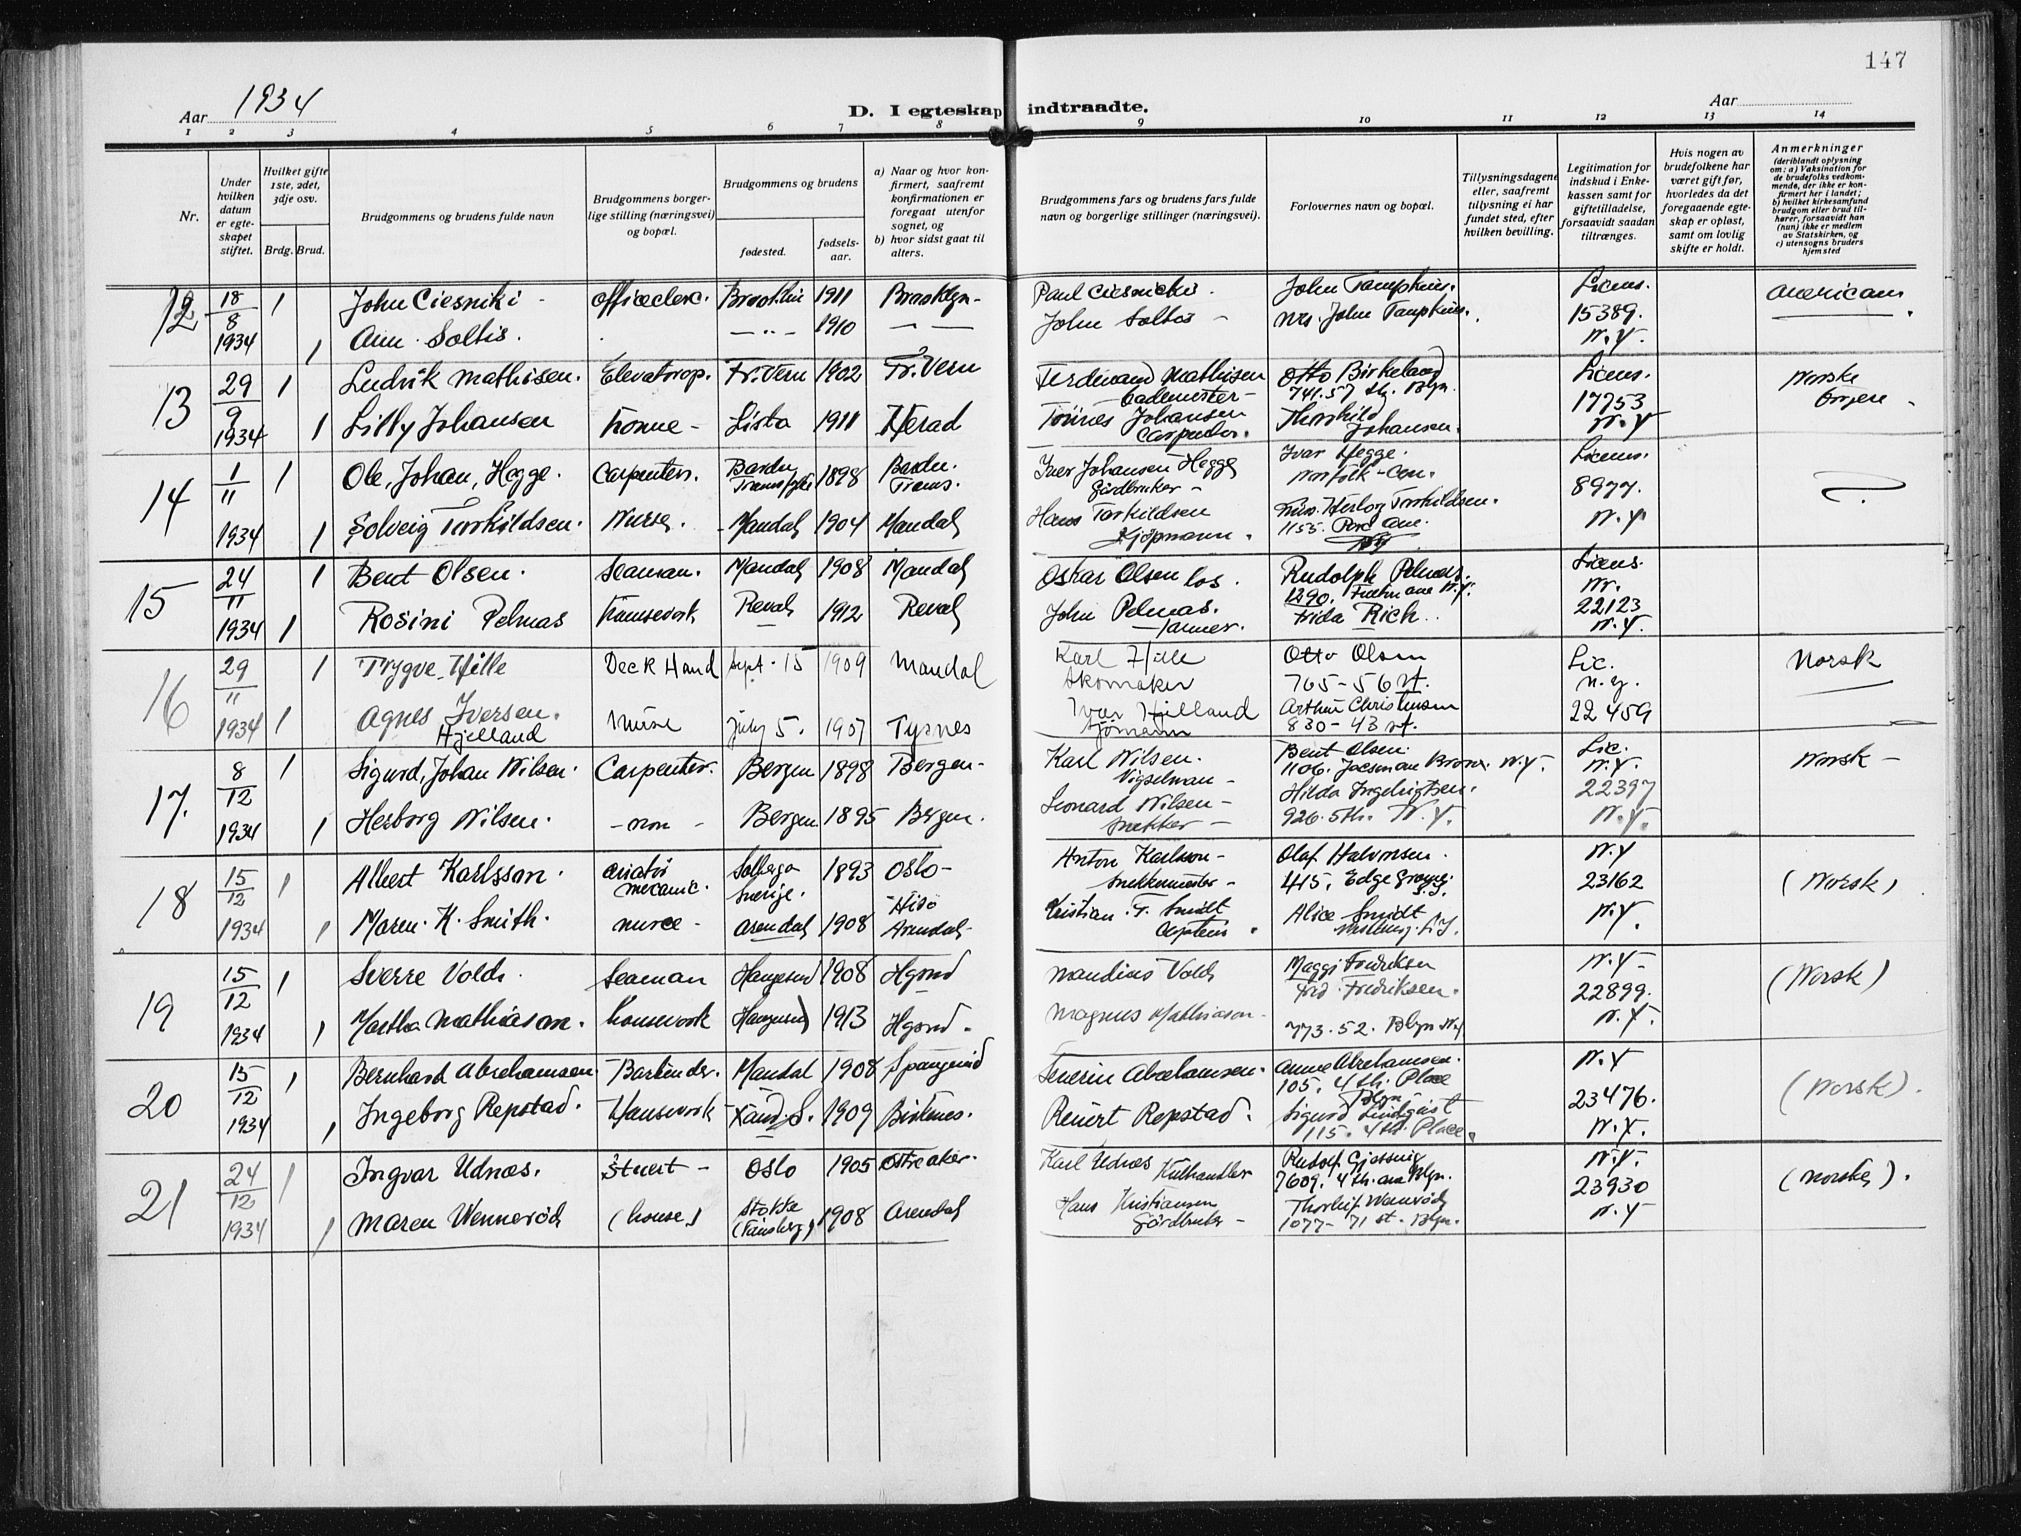 147
Aar 1934
D. I egteskap indtraadte.
Aar
1 2 3 4 5 6 7 8 9 10 11 12 13 14
Nr.
Under hvilken datum er egteskapet stiftet.
Hvilket gifte 1ste, 2det, 3dje osv.
Brdg. Brud.
Brudgommens og brudens fulde navn
Brudgommens borgerlige stilling (næringsvei) og bopæl.
Brudgommens og brudens
fødested.
fødselsaar.
a) Naar og hvor konfirmert, saafremt konfirmationen er foregaat utenfor sognet, og
b) hvor sidst gaat til alters.
Brudgommens fars og brudens fars fulde navn og borgerlige stillinger (næringsvei).
Forlovernes navn og bopæl.
Tillysningsdagene eller, saafremt tillysning ei har fundet sted, efter hvilken bevilling.
Legitimation for indskud i Enkekassen samt for giftetilladelse, forsaavidt saadan tiltrænges.
Hvis nogen av brudefolkene har været gift før, hvorledes da det foregaaende egteskap er opløst, samt om lovlig skifte er holdt.
Anmerkninger
(deriblandt oplysning om: a) Vaksination for de brudefolks vedkommende, der ikke er konfirmert her i landet; b) hvilket kirkesamfund brudgom eller brud tilhører, forsaavidt han (hun) ikke er medlem av Statskirken, og c) utensogns bruders hjemsted
12 18/8 1 John Ciesniki officeclerc. Brooklin 1911 Brooklyn- Paul Ciesnicki John Tampkins. Licens. American
1934 1 Ann Soltis. 1910 John Soltis Mrs. John Tampkins. 15389. N.Y.
13 29/9 1 Ludvik Mathisen. Elevatorop. Tr. Vern 1902 Tr. Vern Ferdinand Mathisen Otto Birkeland Licens. Norske
741. 57 St. Blyn.
1934 1 Lilly Johansen Lista 1911 Herad Tönnes Johansen Carpenter. Thorhild Johansen. 17753 N.Y
14 1/11 1 Ole, Johan, Hegge. Carpenter. Bardu 1898 Bardu. Troms. Iver Johansen Hegge Gårdbruker - Ivar Hegge. Norfolk - Con. Licens.
8977.
1934 1 Solveig Torkildsen. Nurse. Mandal 1904 Mandal Hans Torkildsen Kjöpmann. 1155. N.Y.
15 24/11 1 Bent Olsen. Seaman. Mandal 1908 Mandal Oskar Olsen Los. Rudolph Pelmas. Licens. Nr.
1290.
1934 1 Rosini Pelmas Housework Reval 1912 Reval John Pelmas. Frida Rich 22123 N.Y.
16 29/11 1 Trygve Hille Deck Hand Sept. 15 1909 Mandal Karl Hille Skomaker Otto Olsen 765-56 st. Lic. n.y. Norsk
1934 1 Agnes Iversen. Hjelland Nurse July 5. 1907 Tysnes Ivar Hjelland Sjömann Arthur Christensen 830-43 st. 22459
17. 8/12 1 Sigurd, Johan Nilsen. Carpenter. Bergen 1898 Bergen- Karl Nilsen. Bent Olsen. 1106. Bronx. N.Y. Lic. N.Y. Norsk -
22397
1934 1 Herborg Nilsen. - non - Bergen 1895 Bergen. Leonard Nilsen - Snekker - Hilda Ingebrigtsen. 926. 5th. N.Y. N.Y.
18 15/12 1 Albert Karlsson. mecanic. Solberga Sverige. 1893 Oslo- Anton Karlsson - Snekkermester - Olaf Halvorsen. 415, Edgegrove. N.Y 23162 (Norsk)
1934 1 Maren. K. Smith. nurce - Arendal 1908 Hisö Arendal- Kristian. T. Smidt Captein Alice Smidt N.Y.
19 15/12 1 Sverre Volds. Seaman Haugesund 1908 Hgsnd Volds Maggi Fredriksen N.Y- (Norsk)
Fredriksen. 22899.
1934 1 Martha Mathiason. housework Haugesund 1913 Hgsnd. Magnus Mathiason 773. 52. Blyn NY N.Y.
20 15/12 1 Bernhard Abrahamsen Bartender. Mandal 1908 Spangereid Severin Abrahamsen. Anne Abrahamsen. 105. 4 th. Place Blyn N.Y (Norsk).
23476.
1934 1 Ingeborg Repstad. Housework 1909 Reinert Repstad. Sigurd Lindqvist 115. 4 th. Place. N.Y.
21 24/12 1 Ingvar Udnæs. Stuert - Oslo 1905 Östre aker. Karl Udnæs Kulhandler Rudolf 7609. 4 th. ave Blyn. N.Y. (Norske).
23930
1934 1 Maren Wenneröd (house) Stokke (Tönsberg) 1908 Arendal Hans Kristiansen Gårdbruker - Thorleif Wenneröd 1077- 71 st. Blyn. N.Y